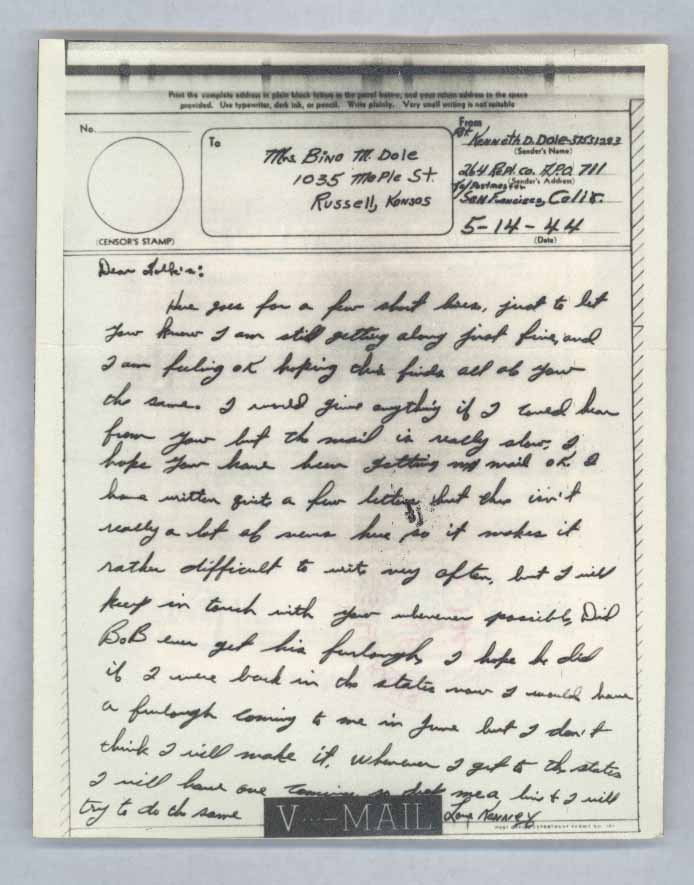 Print the complete address in plain block letters in the panel below, and your return address in the space
provided. Use typewriter, dark ink, or pencil. Write plainly. Very small writing is not suitable
No.
(CENSOR'S STAMP)
To
Mrs. Bino M. Dole
1035 Maple St.
Russell, Kansas
From
Pvt Kenneth D. Dole
(Sender's Name)
264 Repl. Co. A.P.O. 711
(Sender's Address)
c/o Postmaster
San Francisco, Calif.
5-14-44
(Date)
Dear Folk's:
Here goes for a few short lines, just to let
you know I am still getting along just fine, and
I am feeling OK hoping this finds all of you
the same. I would give anything if I could hear
from you but the mail is really slow, I
hope you have been getting my mail OK I
have written quite a few letters but there isn't
really a lot of news here so it makes it
rather difficult to write very often, but I will
keep in touch with you whenever possible, Did
BoB ever get his furlough, I hope he did
if I were back in the states now I would have
a furlough coming to me in June but I don't
think I will make it. Whenever I get to the states
I will have one coming so drop me a line & I will
try to do the same
Love Kenney
V···—MAIL